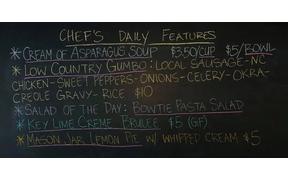 CHEF'S DAILY FEATURES
* CREAM OF ASPARAGUS SOUP $3.50/CUP $5/BOWL
* LOW COUNTRY GUMBO: LOCAL SAUSAGE-NC
CHICKEN-SWEET PEPPERS-ONIONS-CELERY-OKRA-
CREOLE GRAVY-RICE $10
* SALAD OF THE DAY: BOWTIE PASTA SALAD
* KEY LIME CREME BRULEE $5 (GF)
* MASON JAR LEMON PIE W/ WHIPPED CREAM $5